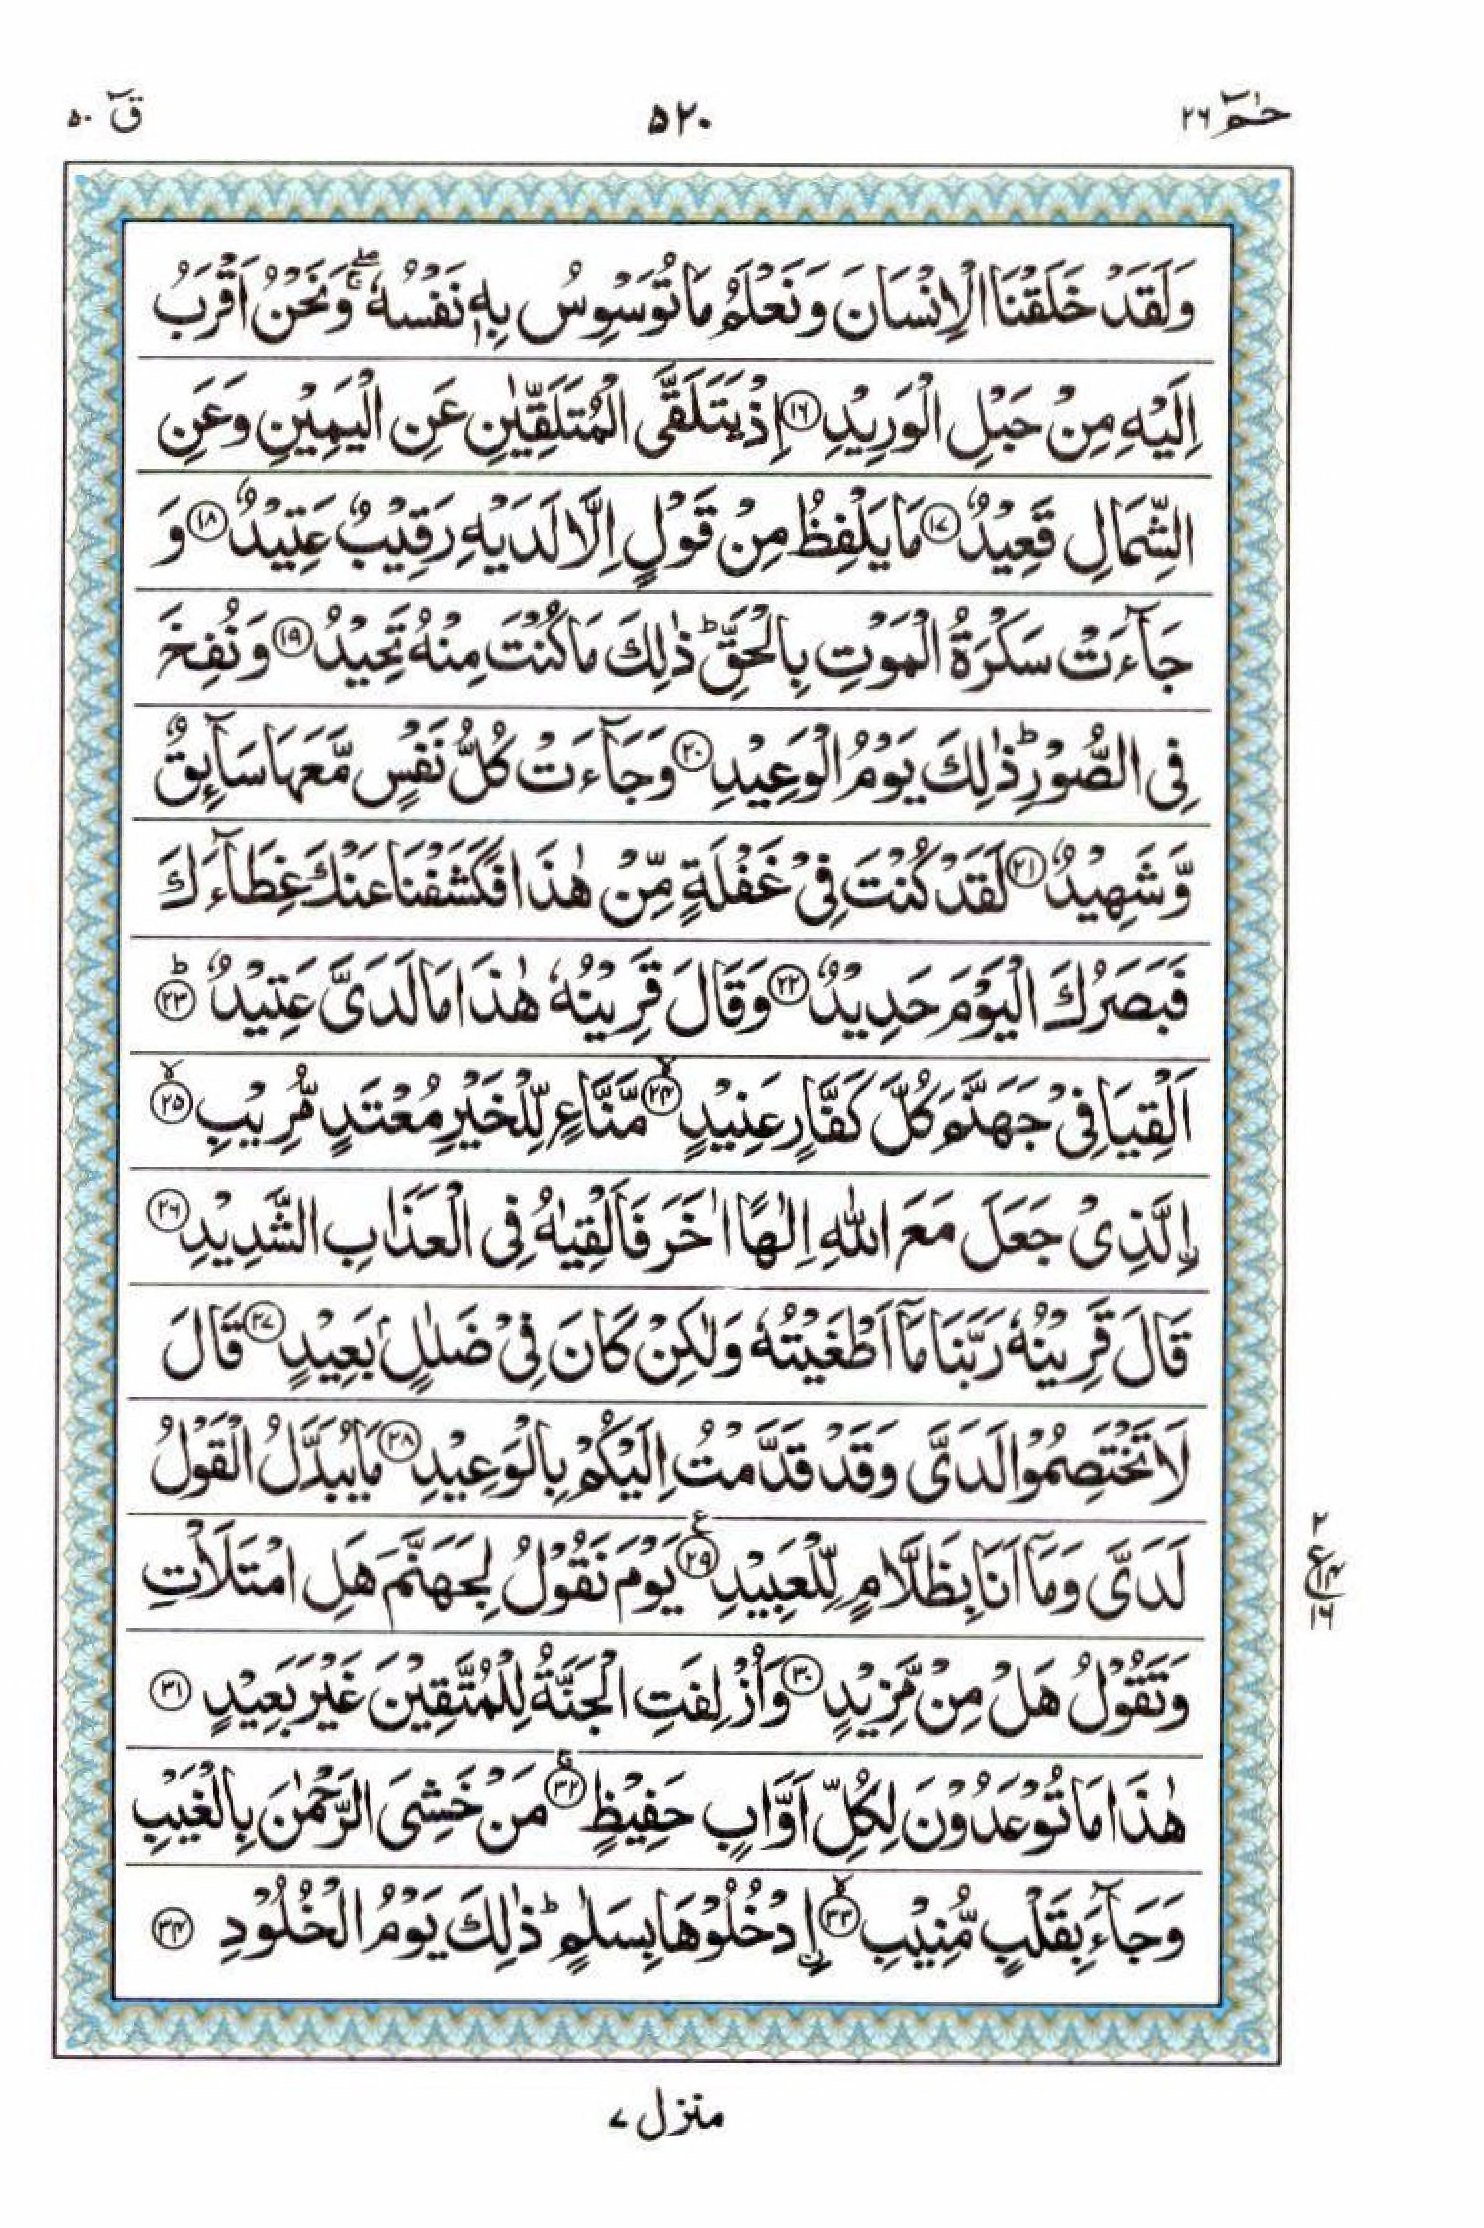 حٰمٓ ۲۶
۵۲۰
قٓ ۵۰
وَلَقَدْ خَلَقْنَا الْاِنْسَانَ وَنَعْلَمُ مَا تُوَسْوِسُ بِهٖ نَفْسُهٗ ۖۚ وَنَحْنُ اَقْرَبُ
اِلَيْهِ مِنْ حَبْلِ الْوَرِيْدِ ﴿۱۶﴾ اِذْ يَتَلَقَّى الْمُتَلَقِّيٰنِ عَنِ الْيَمِيْنِ وَعَنِ
الشِّمَالِ قَعِيْدٌ ﴿۱۷﴾ مَا يَلْفِظُ مِنْ قَوْلٍ اِلَّا لَدَيْهِ رَقِيْبٌ عَتِيْدٌ ﴿۱۸﴾ وَ
جَآءَتْ سَكْرَةُ الْمَوْتِ بِالْحَقِّ ؕ ذٰلِكَ مَا كُنْتَ مِنْهُ تَحِيْدُ ﴿۱۹﴾ وَنُفِخَ
فِى الصُّوْرِ ؕ ذٰلِكَ يَوْمُ الْوَعِيْدِ ﴿۲۰﴾ وَجَآءَتْ كُلُّ نَفْسٍ مَّعَهَا سَآئِقٌ
وَّشَهِيْدٌ ﴿۲۱﴾ لَقَدْ كُنْتَ فِىْ غَفْلَةٍ مِّنْ هٰذَا فَكَشَفْنَا عَنْكَ غِطَآءَكَ
فَبَصَرُكَ الْيَوْمَ حَدِيْدٌ ﴿۲۲﴾ وَقَالَ قَرِيْنُهٗ هٰذَا مَا لَدَىَّ عَتِيْدٌ ؕ﴿۲۳﴾
اَلْقِيَا فِىْ جَهَنَّمَ كُلَّ كَفَّارٍ عَنِيْدٍ ۙ﴿۲۴﴾ مَّنَّاعٍ لِّلْخَيْرِ مُعْتَدٍ مُّرِيْبِ ۙ﴿۲۵﴾
اِ۟لَّذِىْ جَعَلَ مَعَ اللّٰهِ اِلٰهًا اٰخَرَ فَاَلْقِيٰهُ فِى الْعَذَابِ الشَّدِيْدِ ﴿۲۶﴾
قَالَ قَرِيْنُهٗ رَبَّنَا مَاۤ اَطْغَيْتُهٗ وَلٰكِنْ كَانَ فِىْ ضَلٰلٍۢ بَعِيْدٍ ﴿۲۷﴾ قَالَ
لَا تَخْتَصِمُوْا لَدَىَّ وَقَدْ قَدَّمْتُ اِلَيْكُمْ بِالْوَعِيْدِ ﴿۲۸﴾ مَا يُبَدَّلُ الْقَوْلُ
لَدَىَّ وَمَاۤ اَنَا بِظَلَّامٍ لِّلْعَبِيْدِ ؏﴿۲۹﴾ يَوْمَ نَقُوْلُ لِجَهَنَّمَ هَلِ امْتَلَاْتِ
۲
ع ۱۴
۱۶
وَتَقُوْلُ هَلْ مِنْ مَّزِيْدٍ ﴿۳۰﴾ وَاُزْلِفَتِ الْجَنَّةُ لِلْمُتَّقِيْنَ غَيْرَ بَعِيْدٍ ﴿۳۱﴾
هٰذَا مَا تُوْعَدُوْنَ لِكُلِّ اَوَّابٍ حَفِيْظٍ ۚ﴿۳۲﴾ مَنْ خَشِىَ الرَّحْمٰنَ بِالْغَيْبِ
وَجَآءَ بِقَلْبٍ مُّنِيْبِ ۙ﴿۳۳﴾ اِ۟دْخُلُوْهَا بِسَلٰمٍ ؕ ذٰلِكَ يَوْمُ الْخُلُوْدِ ﴿۳۴﴾
منزل ۷